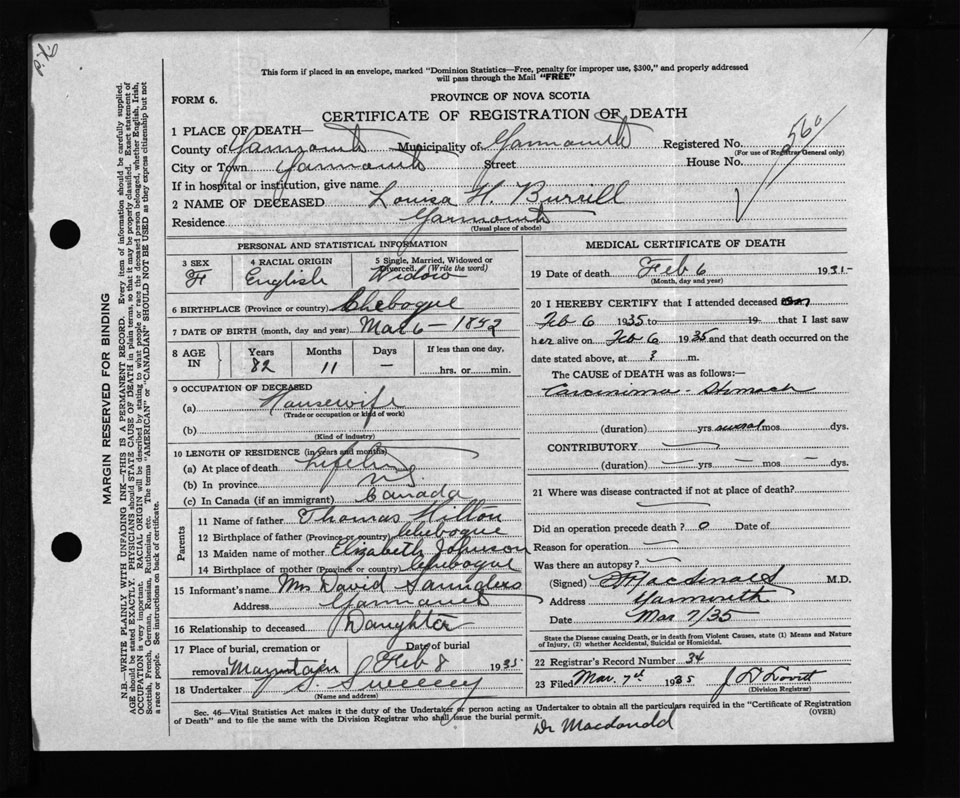 This form if placed in an envelope, marked "Dominion Statistics—Free, penalty for improper use, $300," and properly addressed
will pass through the Mail "FREE"
PROVINCE OF NOVA SCOTIA
FORM 6.
CERTIFICATE OF REGISTRATION OF DEATH
1 PLACE OF DEATH—
County of Yarmouth Municipality of Yarmouth Registered No. 560
(For use of Registrar General only)
City or Town Yarmouth Street House No.
If in hospital or institution, give name
2 NAME OF DECEASED Louisa H. Burrill
Residence Yarmouth
(Usual place of abode)
PERSONAL AND STATISTICAL INFORMATION
3 SEX 4 RACIAL ORIGIN 5 Single, Married, Widowed or
Divorced. (Write the word)
F English Widow
6 BIRTHPLACE (Province or country) Chebogue
7 DATE OF BIRTH (month, day and year) Mar 6 - 1852
8 AGE IN Years Months Days If less than one day,
82 11 — hrs. or min.
9 OCCUPATION OF DECEASED
(a) Housewife
(Trade or occupation or kind of work)
(b)
(Kind of industry)
10 LENGTH OF RESIDENCE (in years and months)
(a) At place of death Lifetime
(b) In province N.S.
(c) In Canada (if an immigrant) Canada
Parents
11 Name of father Thomas Hilton
12 Birthplace of father (Province or country) Chebogue
13 Maiden name of mother Elizabeth Johnson
14 Birthplace of mother (Province or country) Chebogue
15 Informant's name Mrs David Saunders
Address Yarmouth
16 Relationship to deceased Daughter
17 Place of burial, cremation or Date of burial
removal Mountain Feb 8 1935
18 Undertaker S. Sweeney
(Name and address)
MEDICAL CERTIFICATE OF DEATH
19 Date of death Feb 6 1935
(Month, day and year)
20 I HEREBY CERTIFY that I attended deceased
Feb 6 1935 to 19 that I last saw
her alive on Feb 6 1935 and that death occurred on the
date stated above, at ? m.
The CAUSE of DEATH was as follows:
Carcinima - Stomach
(duration) yrs several mos dys.
CONTRIBUTORY —
(duration) — yrs — mos — dys.
21 Where was disease contracted if not at place of death?
—
Did an operation precede death? 0 Date of
Reason for operation —
Was there an autopsy? —
(Signed) Macdonald M.D.
Address Yarmouth
Date Mar 7/35
State the Disease causing Death, or in death from Violent Causes, state (1) Means and Nature
of Injury, (2) whether Accidental, Suicidal or Homicidal.
22 Registrar's Record Number 34
23 Filed Mar. 7th 1935 J D Lovitt
(Division Registrar)
Sec. 46—Vital Statistics Act makes it the duty of the Undertaker or person acting as Undertaker to obtain all the particulars required in the "Certificate of Registration
of Death" and to file the same with the Division Registrar who shall issue the burial permit. (OVER)
Dr Macdonald
MARGIN RESERVED FOR BINDING
N.B.—WRITE PLAINLY WITH UNFADING INK—THIS IS A PERMANENT RECORD. Every item of information should be carefully supplied.
AGE should be stated EXACTLY. PHYSICIANS should STATE CAUSE OF DEATH in plain terms, so that it may be properly classified. Exact statement of
OCCUPATION is very important. RACIAL ORIGIN will be described by stating to what people or race the deceased person belonged, whether English, Irish,
Scottish, French, German, Russian, Ruthenian, etc. The terms "AMERICAN" or "CANADIAN" SHOULD NOT BE USED as they express citizenship but not
a race or people. See instructions on back of certificate.